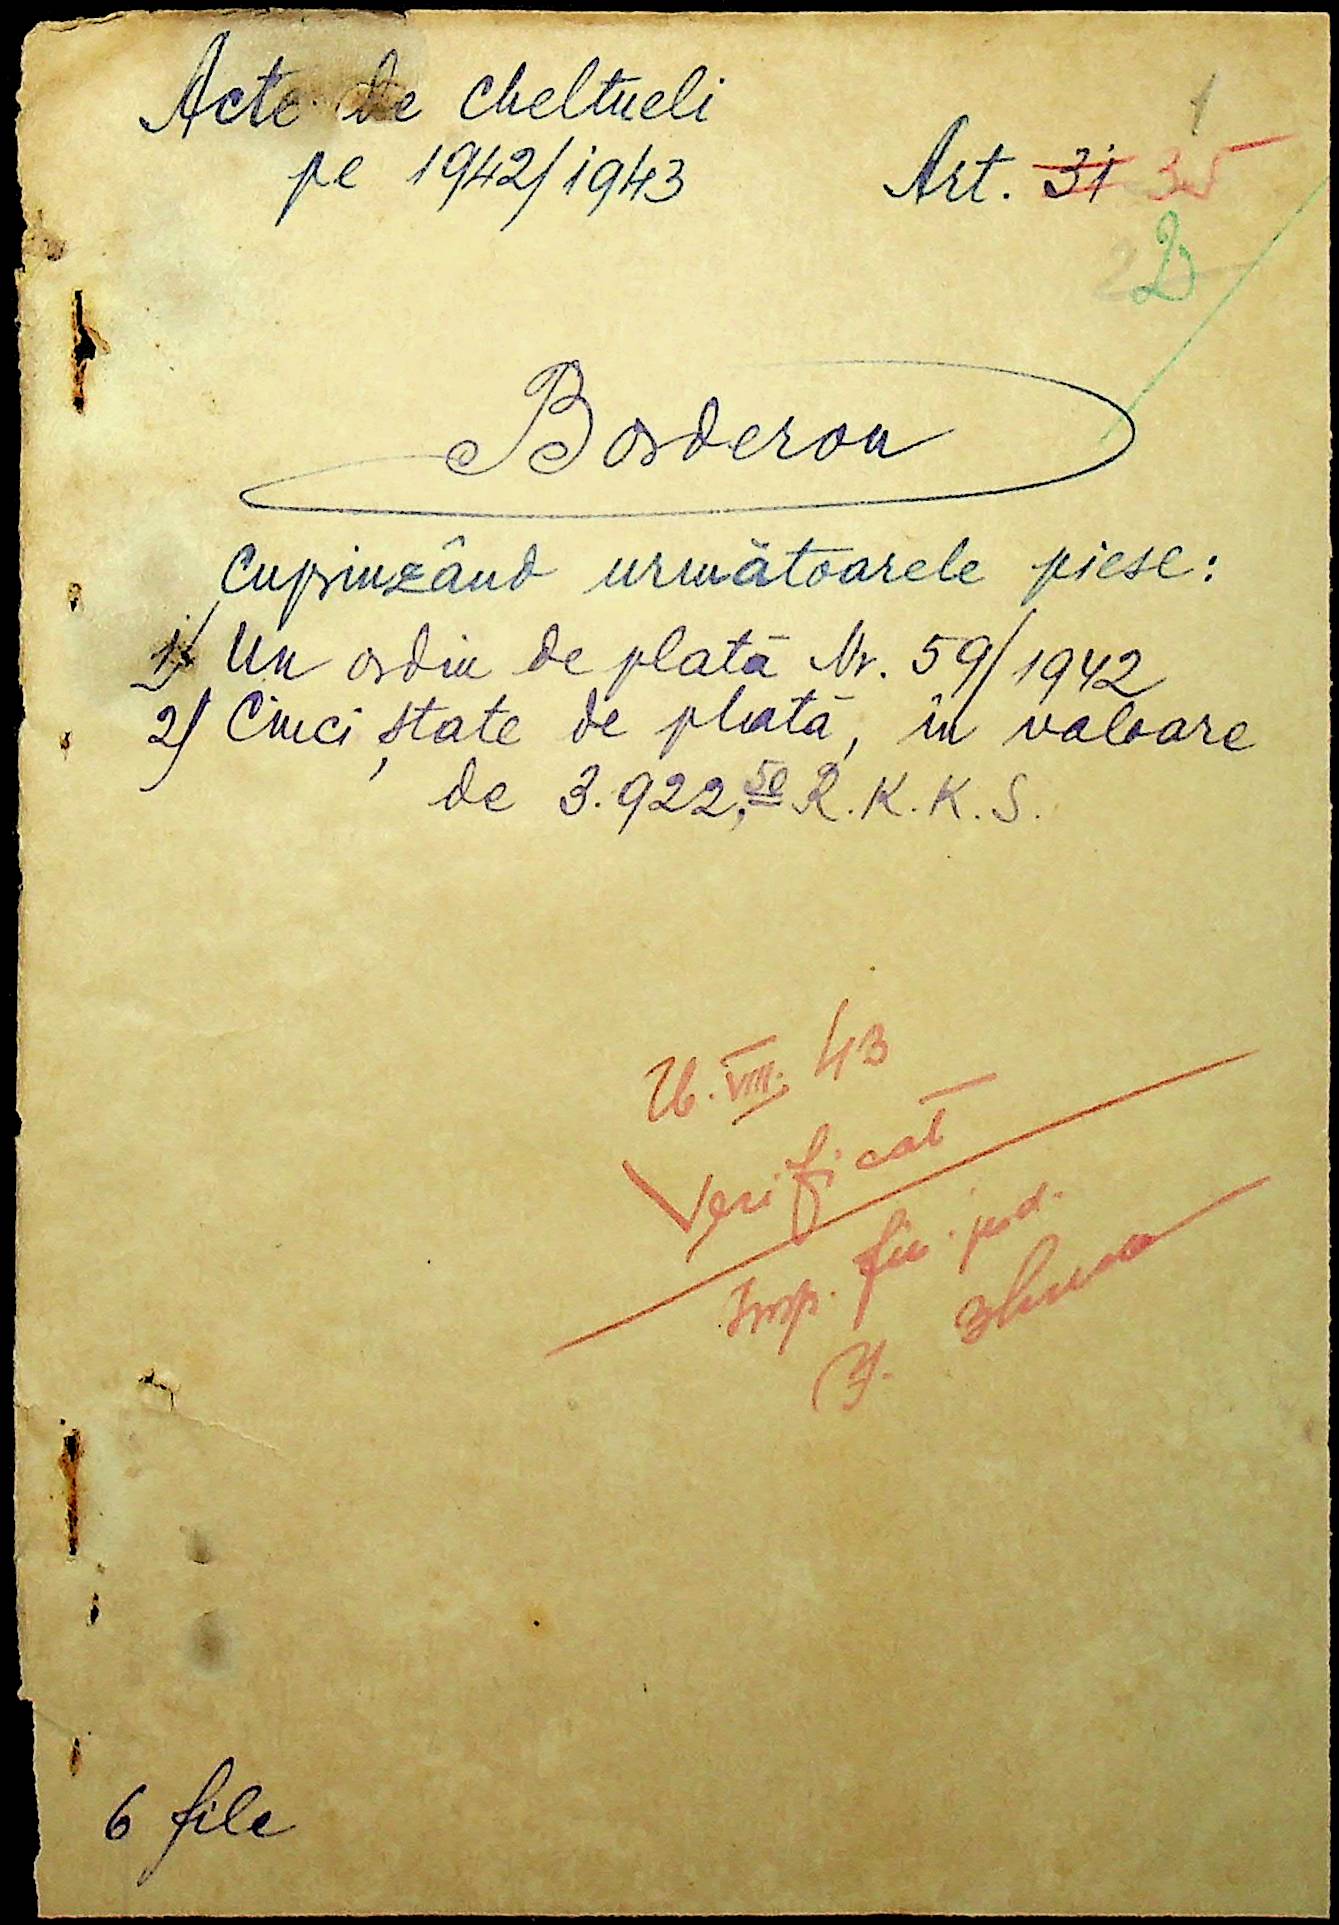 1
Acte de cheltueli
pe 1942/1943
Art. 31 35
2
Borderou
Cuprinzând următoarele piese:
1) Un ordin de plată Nr. 59/1942
2) Cinci ștate de plată, în valoare
de 3.922,50 R.K.K.S.
26.VIII.43
Verificat
Insp. fin. jud.
6 file